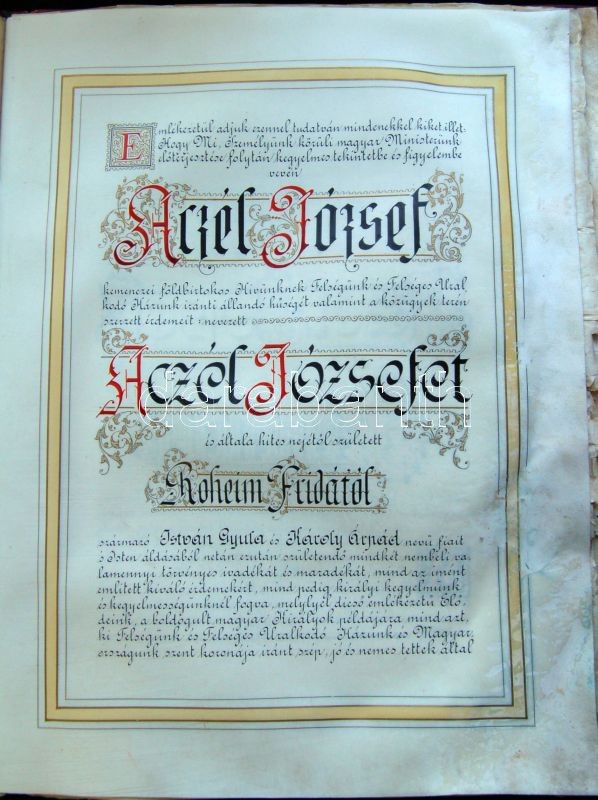 Emlékezetül adjuk ezennel tudatván mindenekkel kiket illet:
Hogy Mi, Személyünk körüli magyar Ministerünk
előterjesztése folytán kegyelmes tekintetbe és figyelembe
vevén
Aczél József
kemenczei földbirtokos Hivünknek Felségünk és Felséges Ural
kodó Házunk iránti állandó hűségét valamint a közügyek terén
szerzett érdemeit: nevezett
Aczél Józsefet
és általa hites nejétől született
Roheim Fridától
származó István Gyula és Károly Árpád nevű fiait
s Isten áldásából netán ezután születendő mindkét nembéli va
lamennyi törvényes ivadékát és maradékát, mind az imént
említett kiváló érdemekért, mind pedig királyi kegyelmünk
és kegyelmességünknél fogva, melylyel dicső emlékezetü Elő
deink, a boldogult magyar Királyok példájára mind azt,
ki Felségünk és Felséges Uralkodó Házunk és Magyar
országunk szent koronája iránt, szép, jó és nemes tettek által
darabanth